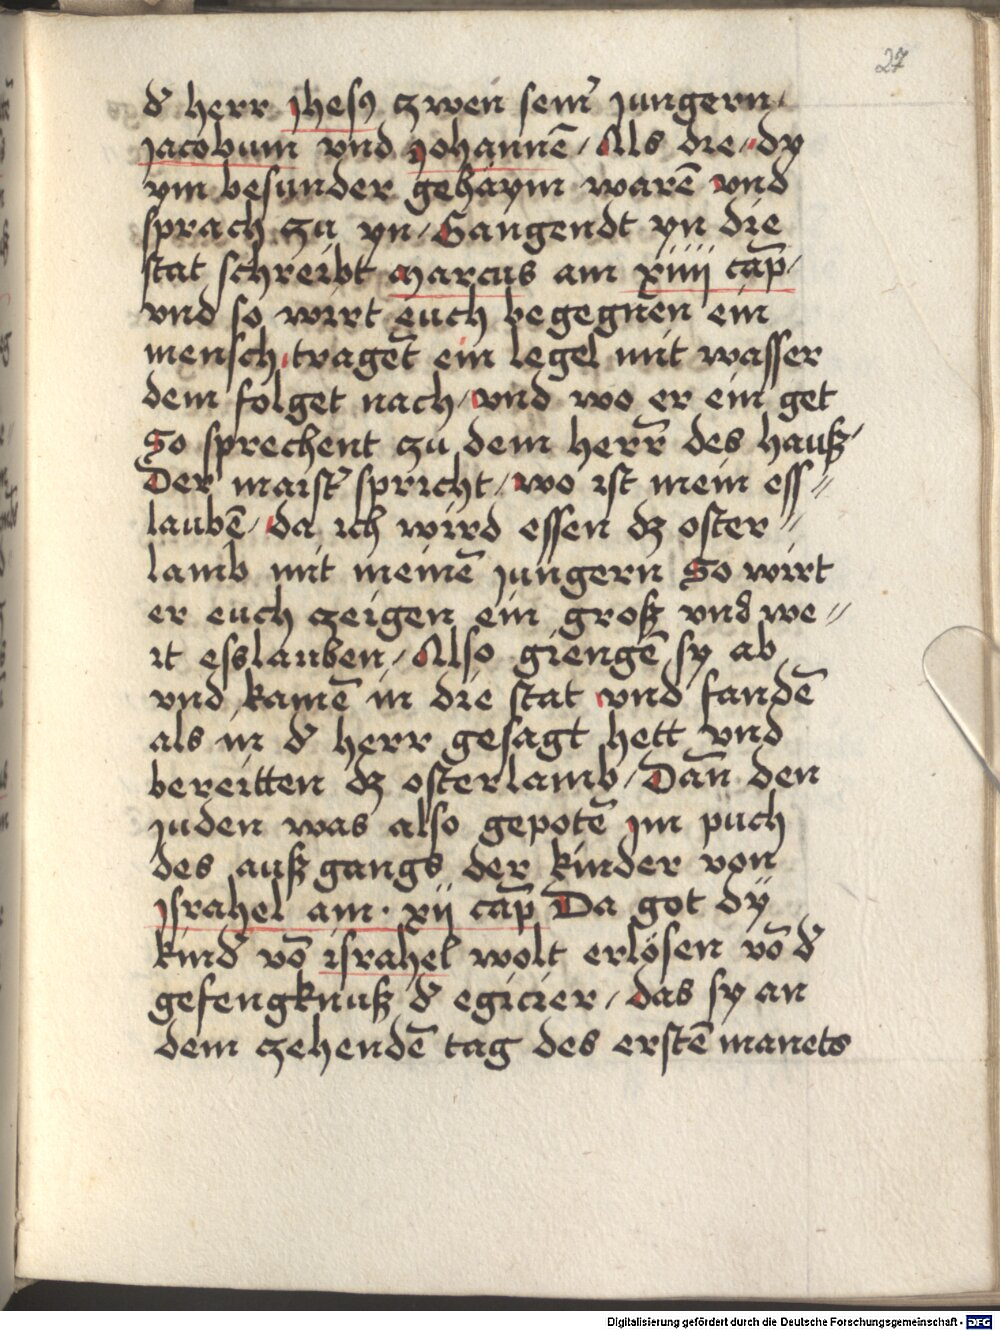 27
d̕ herr jhesꝰ zwen seinr̕ jungern.
jacobum vnd johannē / Als die / dy
ym besunder gehaym warē vnd
sprach zu yn / Gangendt yn die
stat schreibt marcus am xiiij cap̄ /
vnd so wirt euch begegnen ein
mensch tragēt ein legel mit wasser
dem folget nach / vnd wo er ein get
So sprechent zu dem herr̄ des hauß /
Der maistr̕ spricht / wo ist mein ess⸗
laubē / da ich wird essen dʒ oster⸗
lamb mit meinē jungern So wirt
er euch zeigen ein groß vnd we⸗
it esslauben / Also giengē sy ab
vnd kamē in die stat vnd fandē
als in d̕ herr gesagt hett vnd
bereitten dʒ osterlamb / Dan̄ den
juden was also gepotē im püch
des außgangs der kinder von
jsrahel am · xij cap̄ Da got dÿ
kind̕ vō israhel wolt erlösen vō d̕
gefengknuß d̕ egicier / das sy an
dem zehendē tag des erstē manets
Digitalisierung gefördert durch die Deutsche Forschungsgemeinschaft - DFG